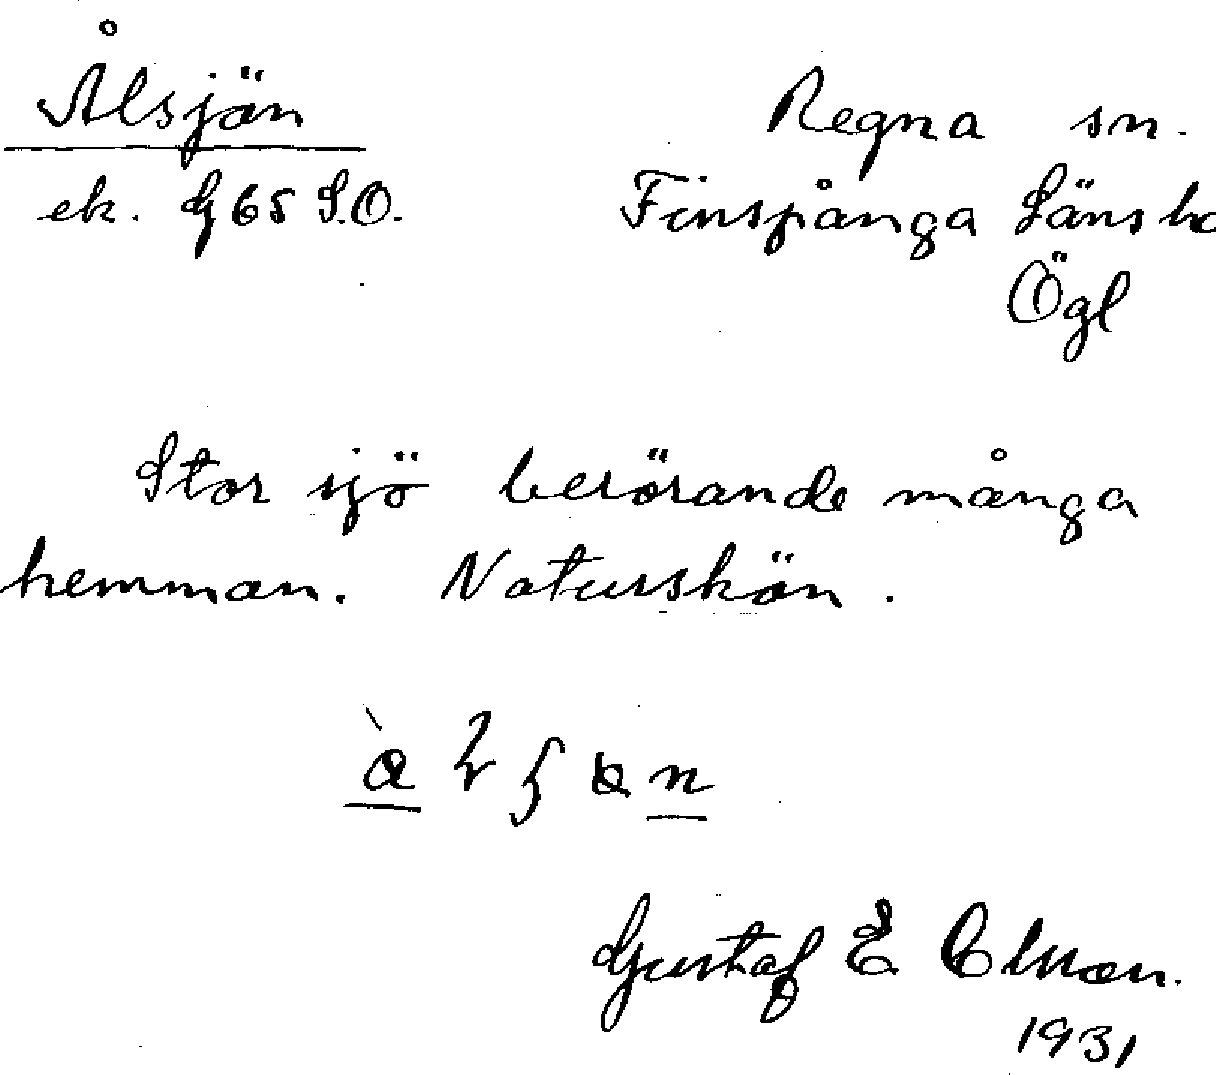 Ålsjön
ek. G65 S.O.
Regna sn.
Finspånga Länshd
Ögl
Stor sjö berörande många
hemman. Naturskön.
Gustaf E Olsson.
1931